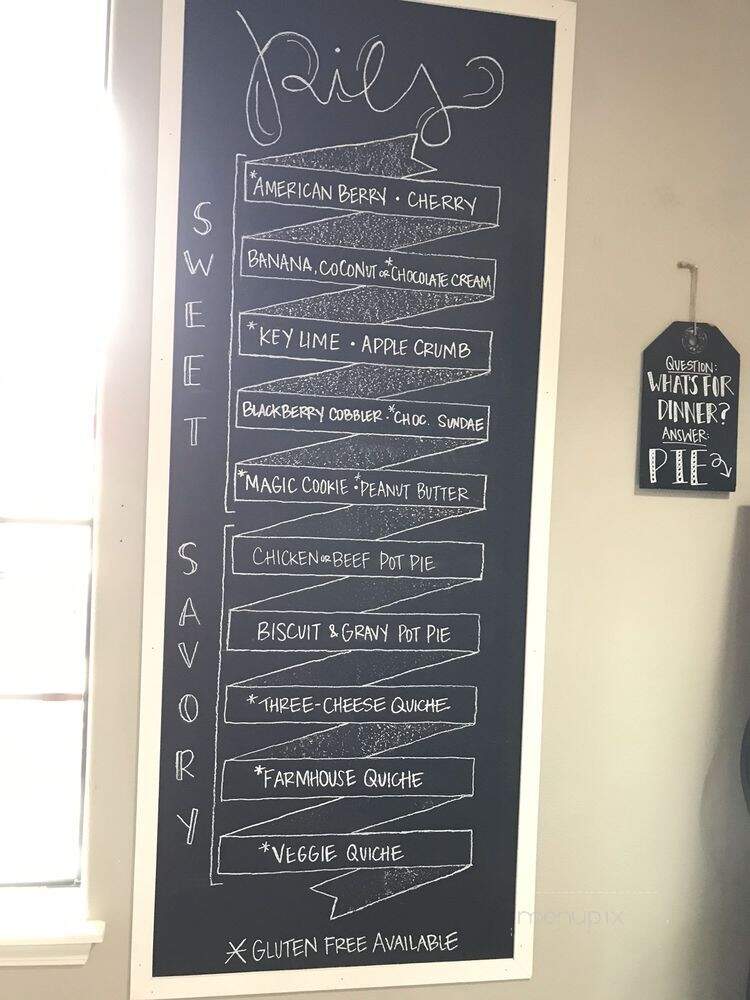 Pies
SWEET
*AMERICAN BERRY • CHERRY
BANANA, COCONUT OR *CHOCOLATE CREAM
*KEY LIME • APPLE CRUMB
BLACKBERRY COBBLER • *CHOC. SUNDAE
*MAGIC COOKIE • *PEANUT BUTTER
SAVORY
CHICKEN OR BEEF POT PIE
BISCUIT & GRAVY POT PIE
*THREE-CHEESE QUICHE
*FARMHOUSE QUICHE
*VEGGIE QUICHE
* GLUTEN FREE AVAILABLE
QUESTION:
WHAT'S FOR
DINNER?
ANSWER:
PIE
menupix